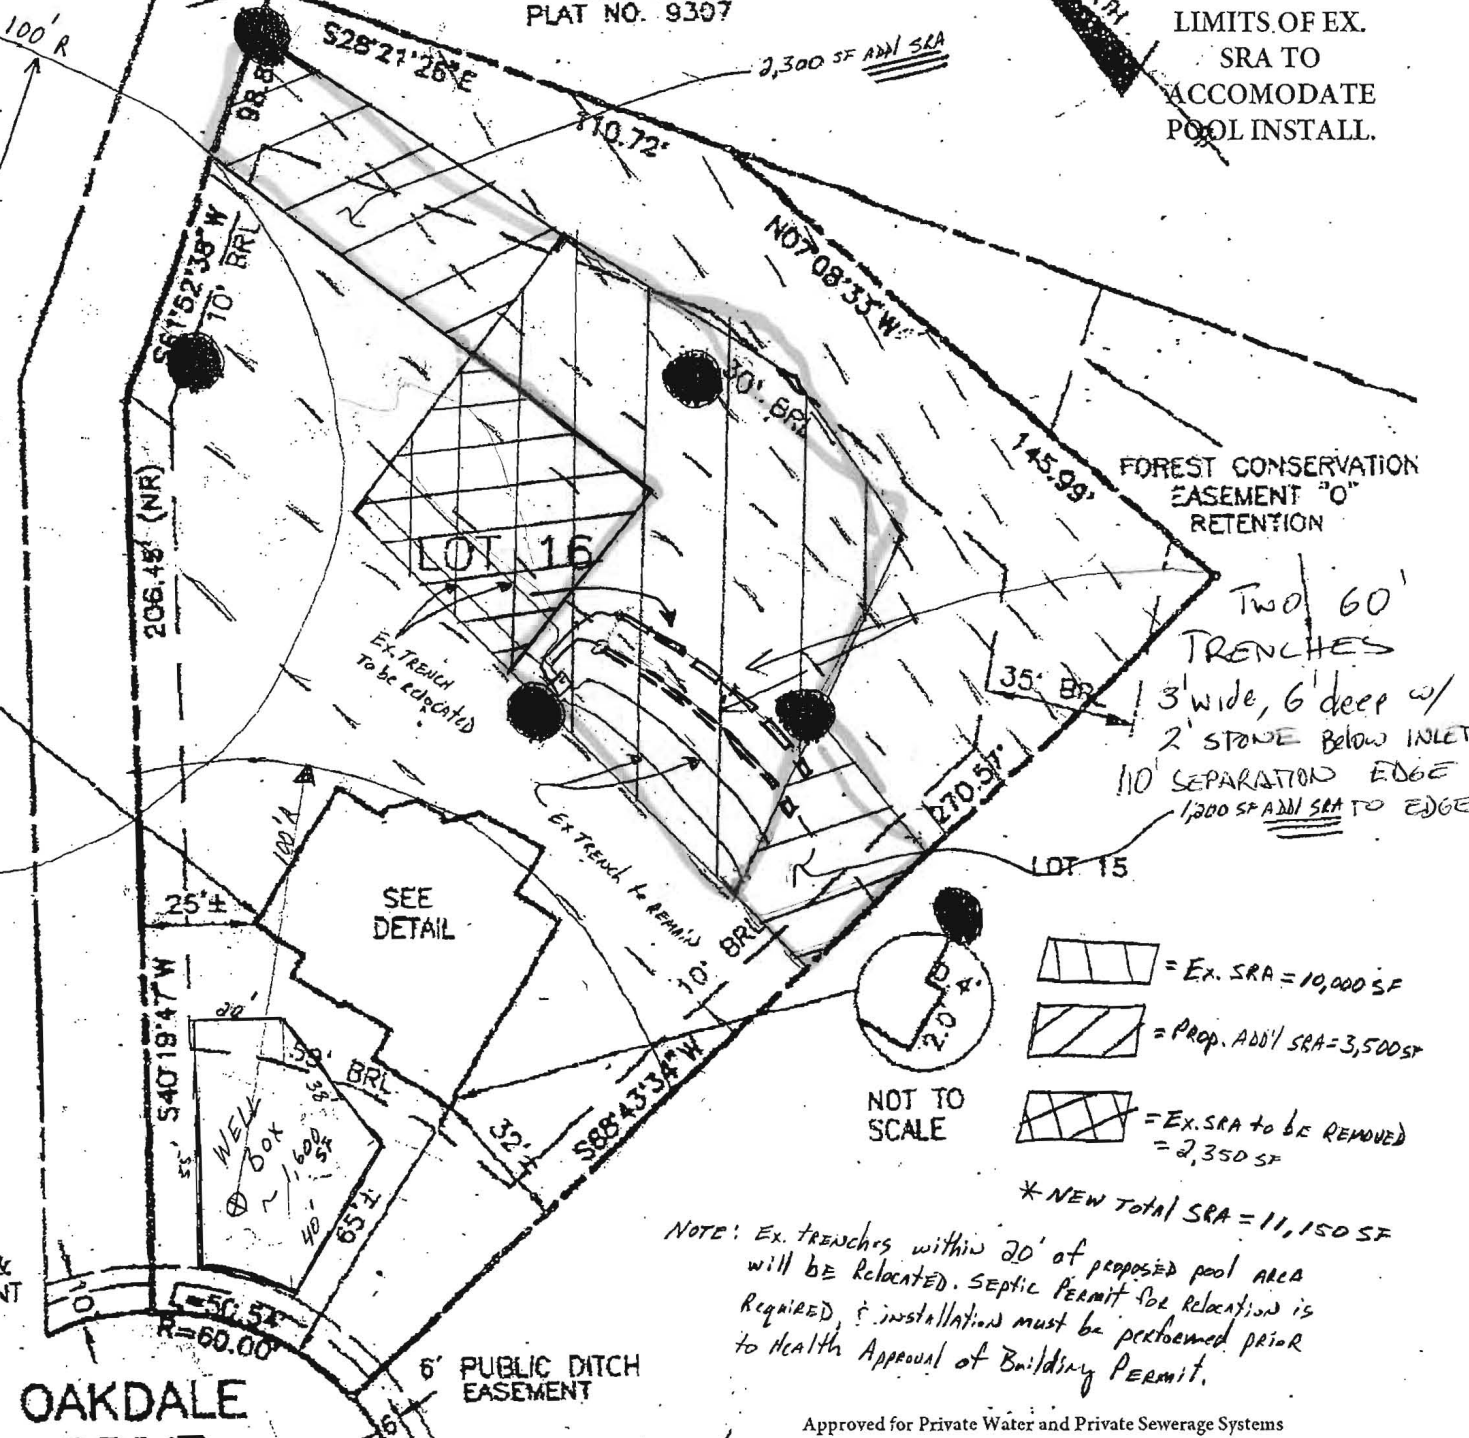 PLAT NO. 9307
LIMITS OF EX.
SRA TO
ACCOMODATE
POOL INSTALL.
100' R
S28°21'26"E
2,300 SF ADD'L SRA
98.8
110.72'
S61°52'38"W
10' BRL
N07°08'33"W
30' BRL
145.99'
FOREST CONSERVATION
EASEMENT "O"
RETENTION
206.48' (NR)
LOT 16
Two 60'
TRENCHES
3' wide, 6' deep w/
2' STONE Below INLET
10' SEPARATION EDGE
TO EDGE
1,200 SF ADD'L SRA
Ex. TRENCH
To be relocated
35' BRL
270.57'
100'R
EX TRENCH to REMAIN
LOT 15
25'±
SEE
DETAIL
10' BRL
S40°19'47"W
20'
50' BRL
38'
WELL
BOX
~1,600
SF
55'
40'
65'±
32'±
S88°43'34"W
2.0'
NOT TO
SCALE
= Ex. SRA = 10,000 SF
= Prop. ADD'l SRA = 3,500 SF
= Ex. SRA to be REMOVED
= 2,350 SF
* NEW Total SRA = 11,150 SF
NOTE: Ex. trenches within 20' of proposed pool AREA
will be Relocated. Septic Permit for Relocation is
Required, & installation must be performed prior
to Health Approval of Building Permit.
L=50.54'
R=60.00'
6' PUBLIC DITCH
EASEMENT
OAKDALE
Approved for Private Water and Private Sewerage Systems